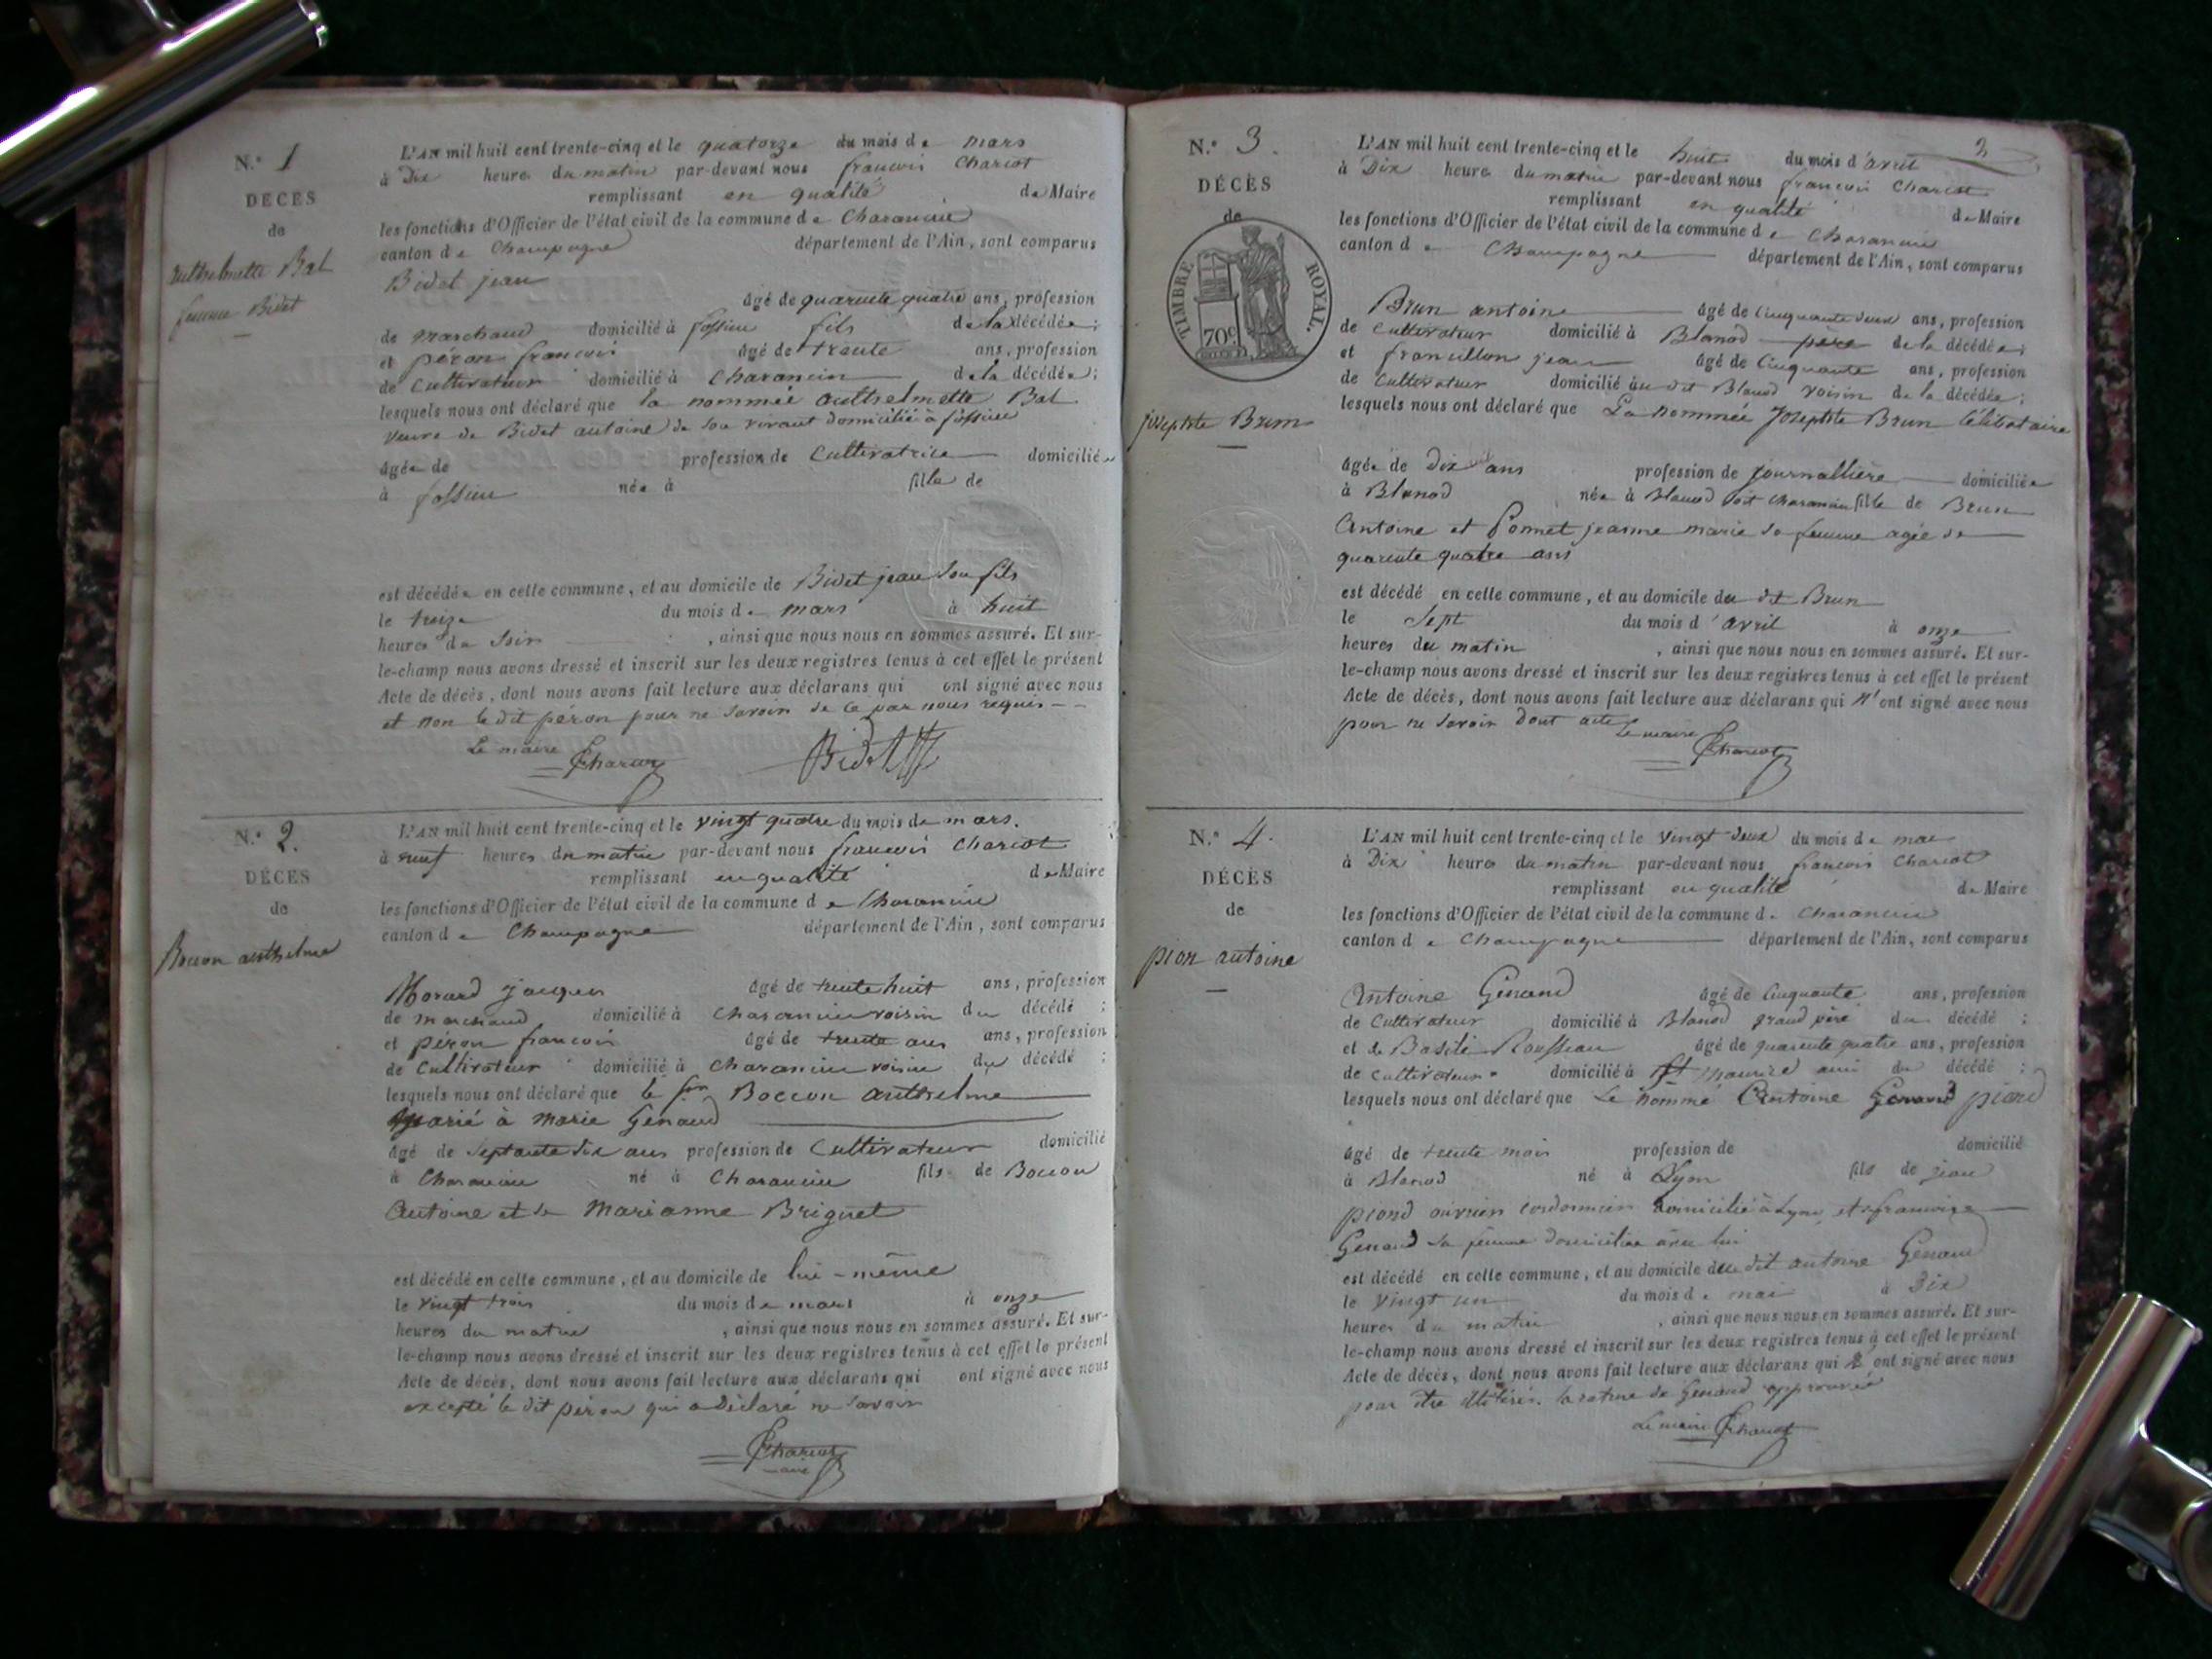 N.° 1
DÉCÈS
de
anthelmette Bal
femme Bidet
L'AN mil huit cent trente-cinq et le quatorze du mois de mars
à Dix heures du matin par-devant nous françois Chariot
remplissant en qualité de Maire
les fonctions d'Officier de l'état civil de la commune de Charancin
canton de Champagne département de l'Ain, sont comparus
Bidet jean
âgé de quarente quatre ans, profession
de marchand domicilié à fossieu fils de la décédée;
et péron françois âgé de trente ans, profession
de Cultivateur domicilié à Charancin de la décédée;
lesquels nous ont déclaré que la nommée anthelmette Bal
veuve de Bidet antoine de son vivant domicilié à fossieu
âgée de profession de Cultivatrice domiciliée
à fossieu née à fille de
est décédée en cette commune, et au domicile de Bidet jean son fils
le treize du mois de mars à huit
heures du soir , ainsi que nous nous en sommes assuré. Et sur-
le-champ nous avons dressé et inscrit sur les deux registres tenus à cet effet le présent
Acte de décès, dont nous avons fait lecture aux déclarans qui ont signé avec nous
et non le dit péron pour ne savoir de ce par nous requis
Le maire Chariot Bidet
N.° 2.
DÉCÈS
de
Bocion anthelme
L'AN mil huit cent trente-cinq et le vingt quatre du mois de mars.
à neuf heures du matin par-devant nous françois Chariot
remplissant en qualité de Maire
les fonctions d'Officier de l'état civil de la commune de Charancin
canton de Champagne département de l'Ain, sont comparus
Morard jacques âgé de trente huit ans, profession
de marchand domicilié à Charancin voisin du décédé;
et péron françois âgé de trente ans ans, profession
de Cultivateur domicilié à Charancin voisin du décédé;
lesquels nous ont déclaré que le sr Bocion anthelme
marié à marie Genaud
âgé de septante six ans profession de Cultivateur domicilié
à Charancin né à Charancin fils de Bocion
Antoine et de Marianne Briguet
est décédé en cette commune, et au domicile de lui-même
le vingt trois du mois de mars à onze
heures du matin , ainsi que nous nous en sommes assuré. Et sur-
le-champ nous avons dressé et inscrit sur les deux registres tenus à cet effet le présent
Acte de décès, dont nous avons fait lecture aux déclarans qui ont signé avec nous
excepté le dit péron qui a déclaré ne savoir
Chariot
maire
2
N.° 3.
DÉCÈS
de
TIMBRE ROYAL.
70c
josephte Brun
L'AN mil huit cent trente-cinq et le huit du mois d'avril
à Dix heures du matin par-devant nous françois Chariot
remplissant en qualité de Maire
les fonctions d'Officier de l'état civil de la commune de Charancin
canton de Champagne département de l'Ain, sont comparus
Brun antoine âgé de Cinquante deux ans, profession
de Cultivateur domicilié à Blanod père de la décédée;
et franeillon jean âgé de Cinquante ans, profession
de Cultivateur domicilié au dit Blanod voisin de la décédée;
lesquels nous ont déclaré que La nommée Josephte Brun Célibataire
âgée de dix ans profession de Journallière domiciliée
à Blanod née à Blanod Charancin fille de Brun
Antoine et Ponnet jeanne marie sa femme agée de
quarente quatre ans
est décédé en cette commune, et au domicile du dt Brun
le Sept du mois d'avril à onze
heures du matin , ainsi que nous nous en sommes assuré. Et sur-
le-champ nous avons dressé et inscrit sur les deux registres tenus à cet effet le présent
Acte de décès, dont nous avons fait lecture aux déclarans qui n'ont signé avec nous
pour ne savoir dont acte Le maire
Chariot
N.° 4.
DÉCÈS
de
pion antoine
L'AN mil huit cent trente-cinq et le vingt deux du mois de mai
à Dix heures du matin par-devant nous françois Chariot
remplissant en qualité de Maire
les fonctions d'Officier de l'état civil de la commune de Charancin
canton de Champagne département de l'Ain, sont comparus
Antoine Genand âgé de Cinquante ans, profession
de Cultivateur domicilié à Blanod grand père du décédé;
et de Basile Rousseau âgé de quarente quatre ans, profession
de cultivateur domicilié à St maurice ami du décédé;
lesquels nous ont déclaré que Le nommé Antoine Genand piond
âgé de trente mois profession de domicilié
à Blanod né à Lyon fils de jean
piond ouvrier cordonnier domicilié à Lyon et françoise
Genand sa femme domiciliée avec lui
est décédé en cette commune, et au domicile du dit antoine Genand
le vingt un du mois de mai à dix
heures du matin , ainsi que nous nous en sommes assuré. Et sur-
le-champ nous avons dressé et inscrit sur les deux registres tenus à cet effet le présent
Acte de décès, dont nous avons fait lecture aux déclarans qui ont signé avec nous
pour être illitérés. la rature de Genand approuvée
Le maire Chariot